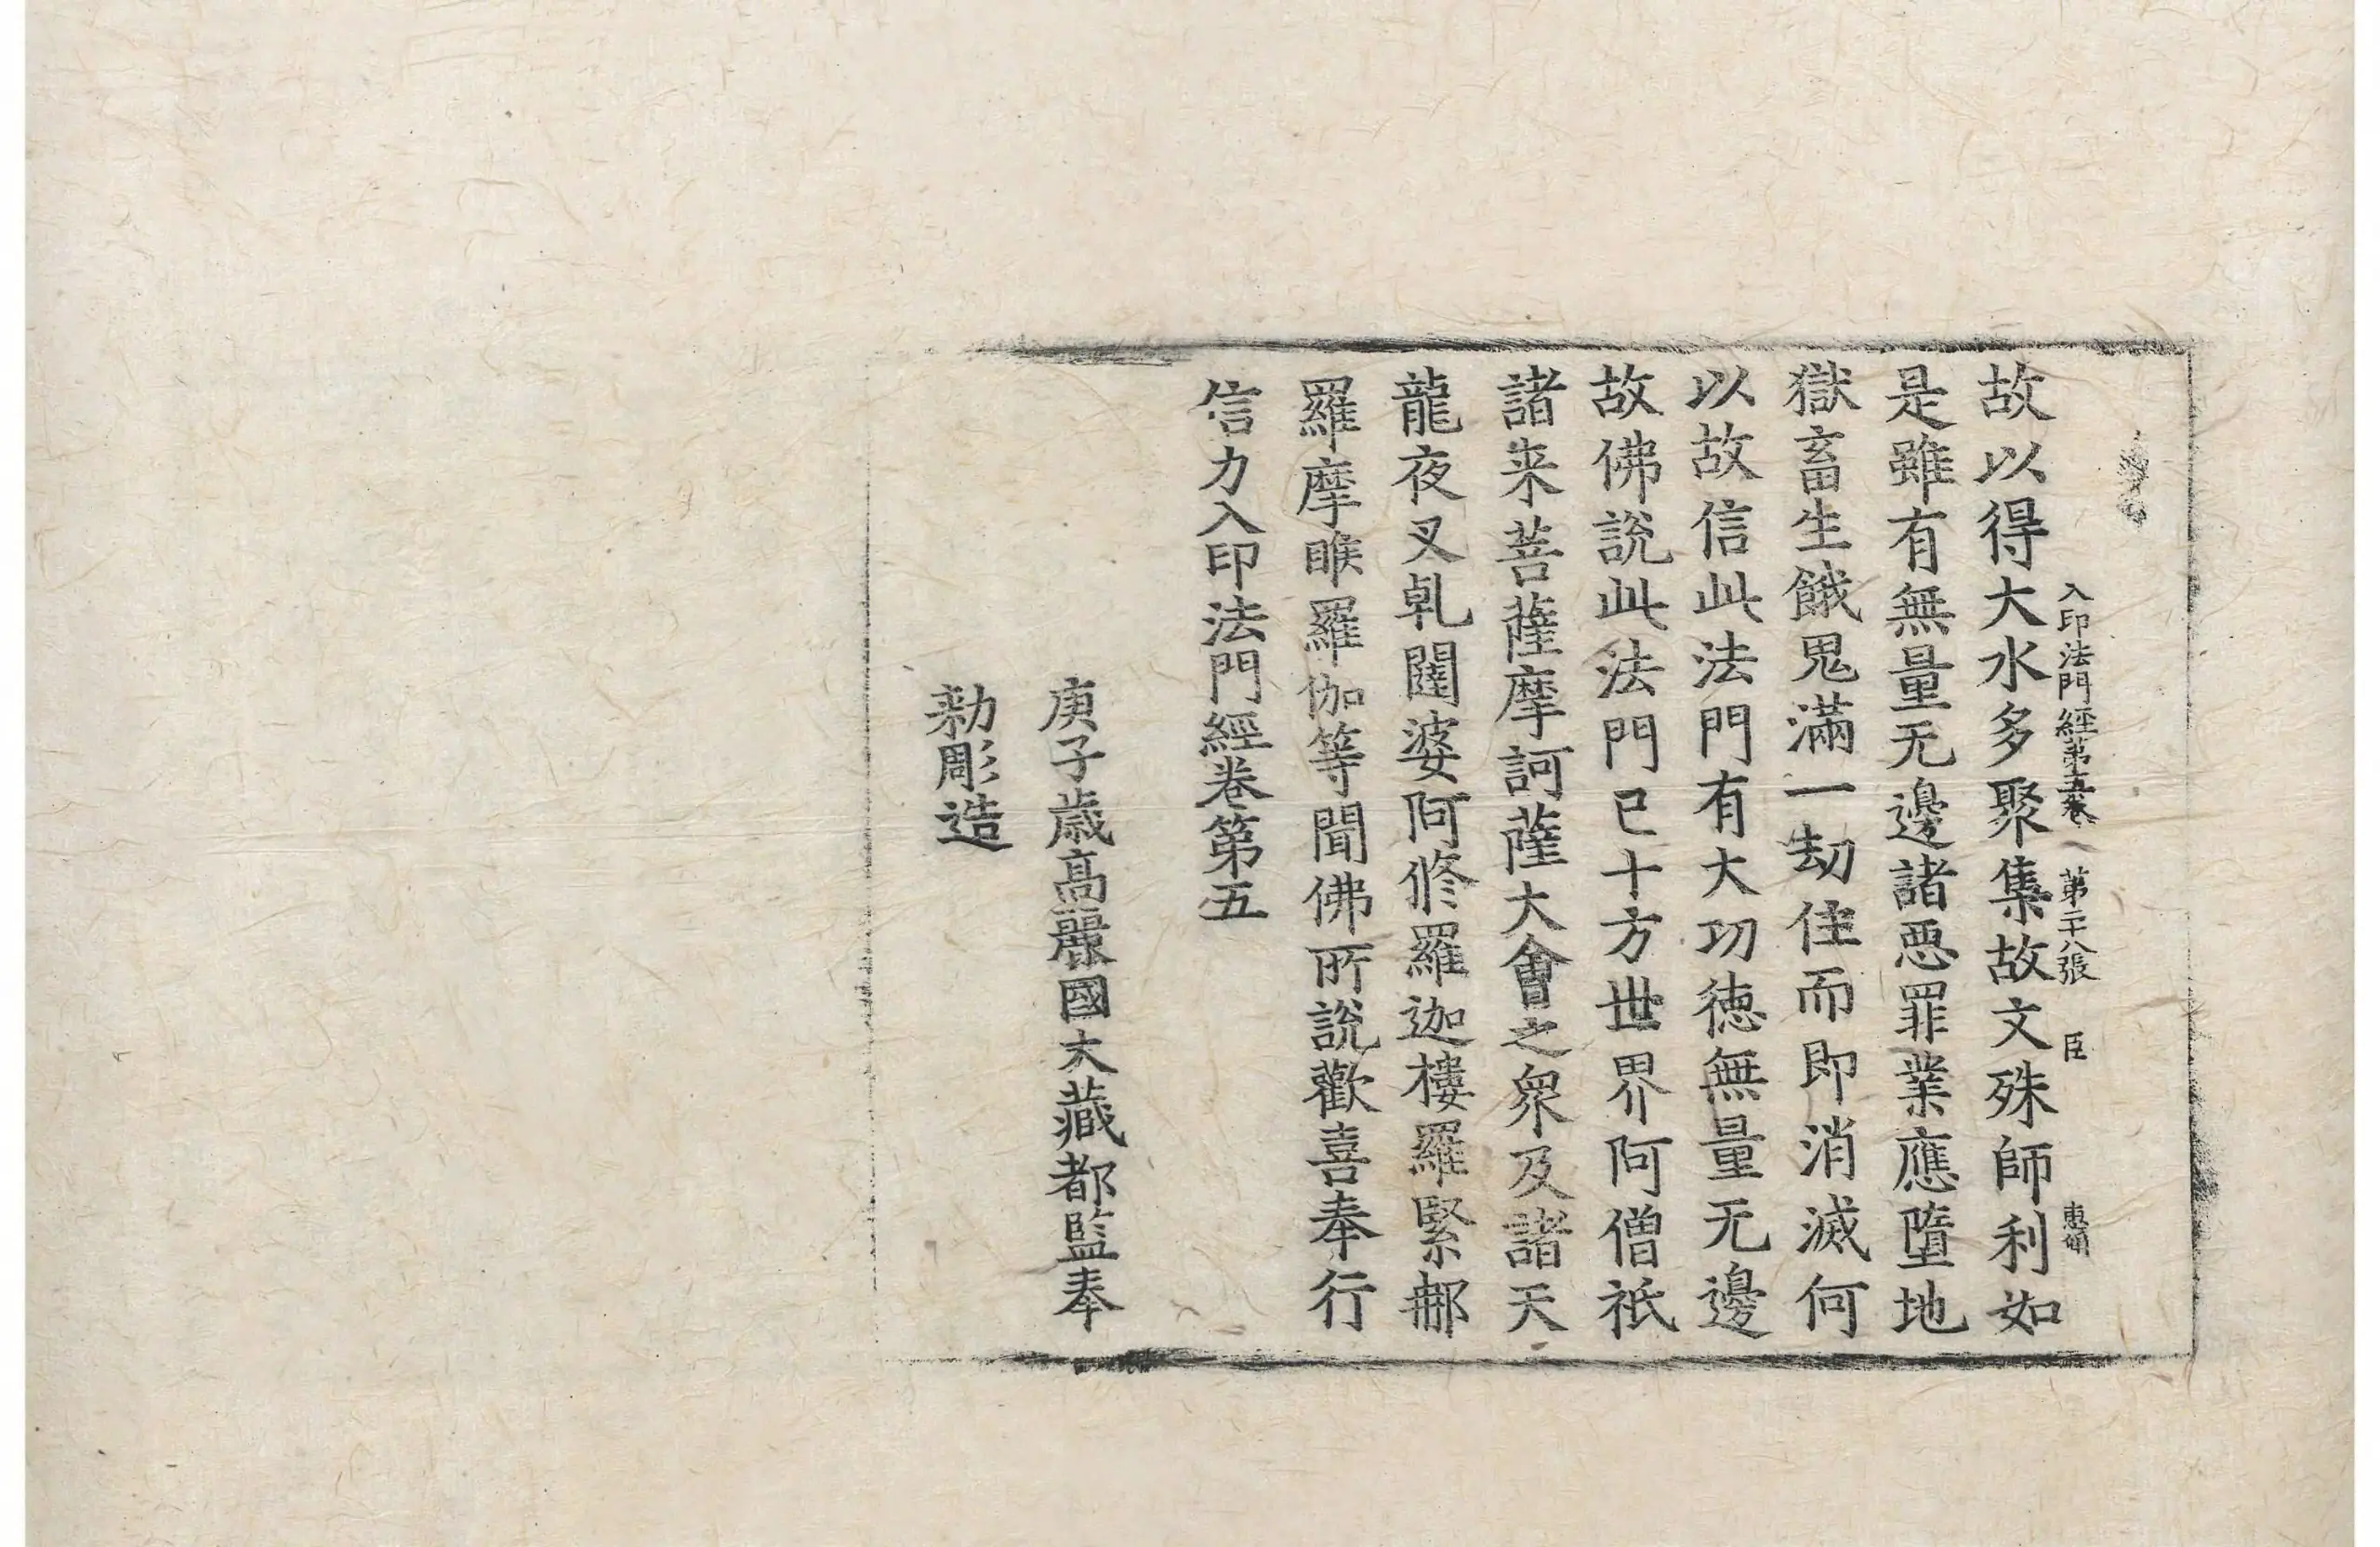 入印法門經第五卷 第二十八張 臣
故以得大水多聚集故文殊師利如
是雖有無量无邊諸惡罪業應墮地
獄畜生餓鬼滿一劫住而即消滅何
以故信此法門有大功德無量无邊
故佛說此法門已十方世界阿僧祇
諸来菩薩摩訶薩大會之衆及諸天
龍夜叉乹闥婆阿脩羅迦樓羅緊那
羅摩睺羅伽等聞佛所說歡喜奉行
信力入印法門經卷第五
庚子歲高麗國大藏都監奉
勑彫造